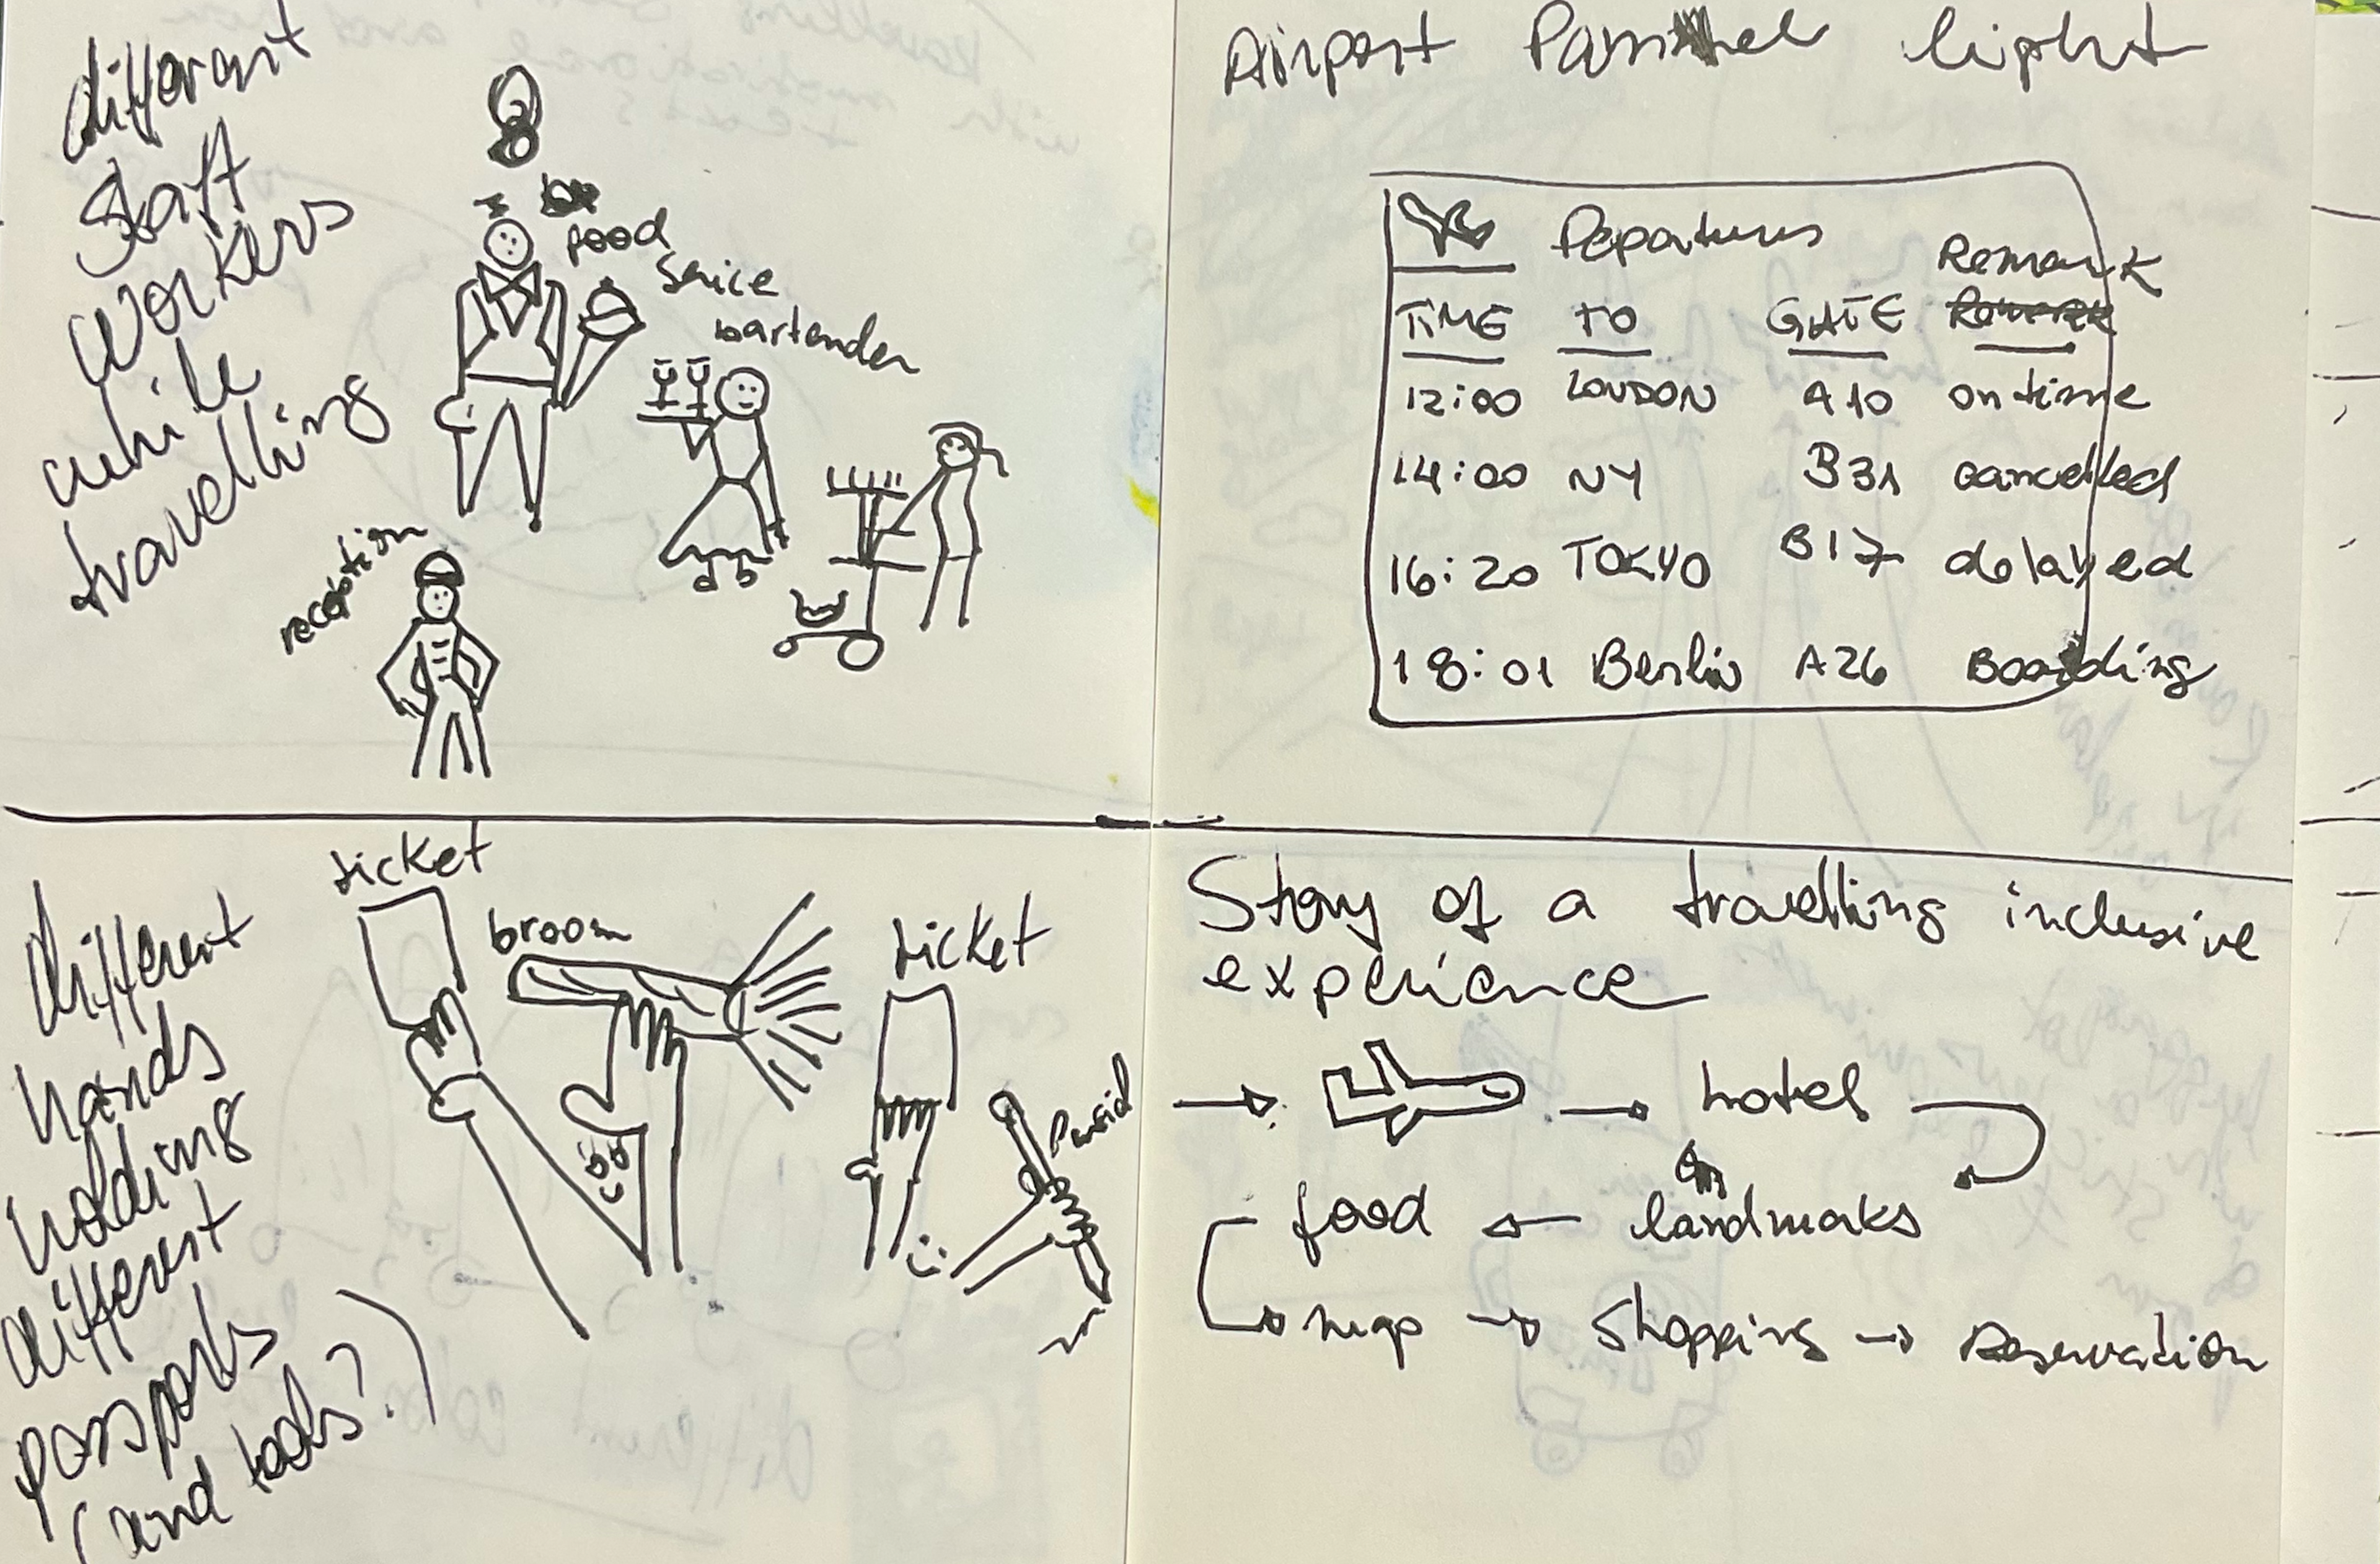 different
staff
workers
while
travelling
food
Serice
bartender
reception
Airport Pannel light
Departures
Remark
TIME TO GATE
12:00 LONDON A10 on time
14:00 NY B31 cancelled
16:20 TOKYO B17 delayed
18:01 Berlin A26 Boarding
different
hands
holding
different
passports
(and tools?)
ticket
broom
ticket
Story of a travelling inclusive
experience
→ → hotel
food ← landmarks
map → Shopping → Reservation